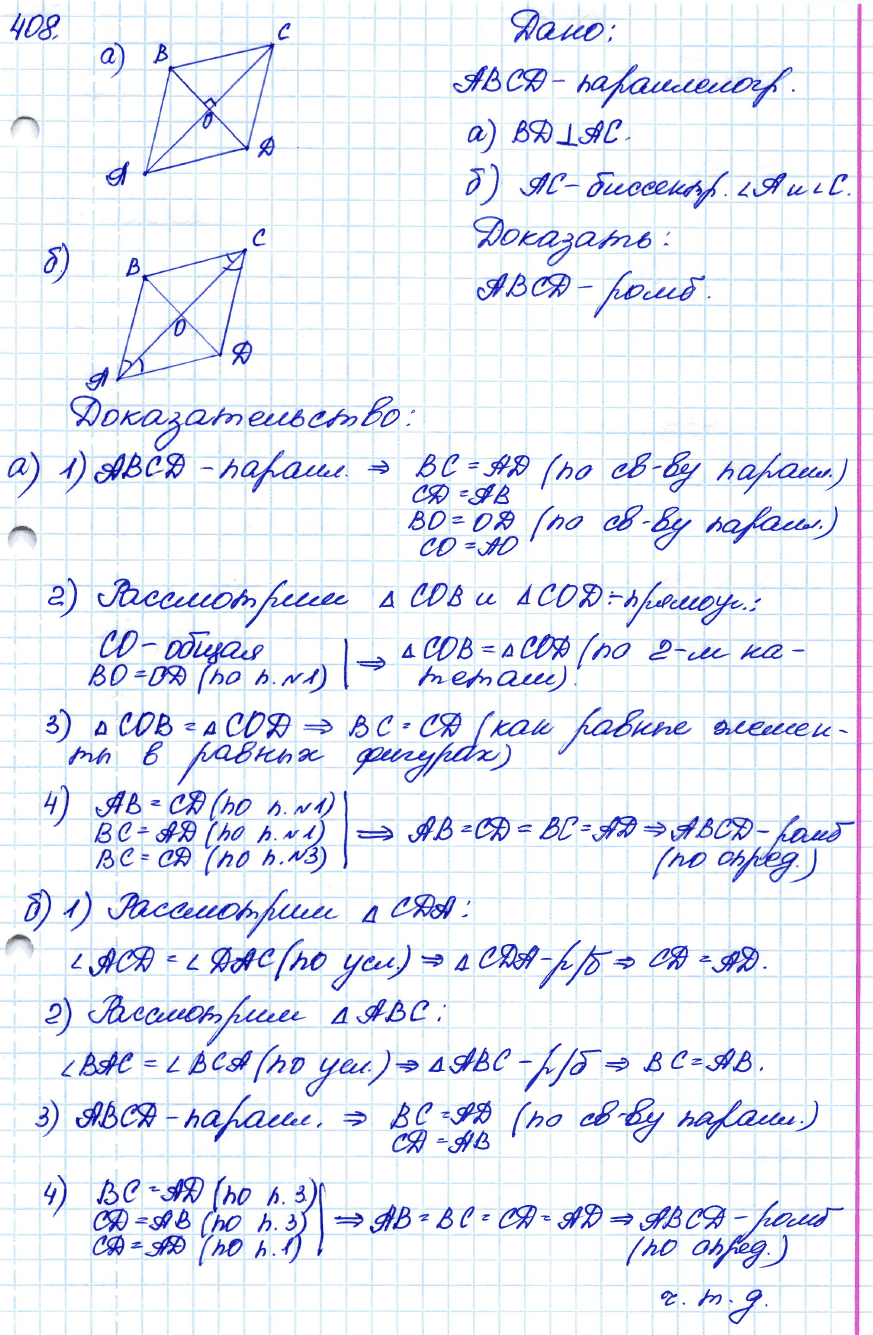 408.
а) B C
O
A D
Дано:
ABCD – параллелогр.
а) BD ⊥ AC.
б) AC – биссектр. ∠A и ∠C.
Доказать:
ABCD – ромб.
б) B C
O
A D
Доказательство:
а) 1) ABCD – паралл. ⇒ BC = AD (по св-ву паралл.)
CD = AB
BO = OD (по св-ву паралл.)
CO = AO
2) Рассмотрим △ COB и △ COD – прямоуг.:
CO – общая
BO = OD (по п. №1) ⇒ △ COB = △ COD (по 2-м ка-
тетам).
3) △ COB = △ COD ⇒ BC = CD (как равные элемен-
ты в равных фигурах)
4) AB = CD (по п. №1)
BC = AD (по п. №1) ⇒ AB = CD = BC = AD ⇒ ABCD – ромб
BC = CD (по п. №3) (по опред.)
б) 1) Рассмотрим △ CDA:
∠ACD = ∠DAC (по усл.) ⇒ △ CDA – р/б ⇒ CD = AD.
2) Рассмотрим △ ABC:
∠BAC = ∠BCA (по усл.) ⇒ △ ABC – р/б ⇒ BC = AB.
3) ABCD – паралл. ⇒ BC = AD (по св-ву паралл.)
CD = AB
4) BC = AD (по п. 3)
CD = AB (по п. 3) ⇒ AB = BC = CD = AD ⇒ ABCD – ромб
CD = AD (по п. 1) (по опред.)
ч. т. д.